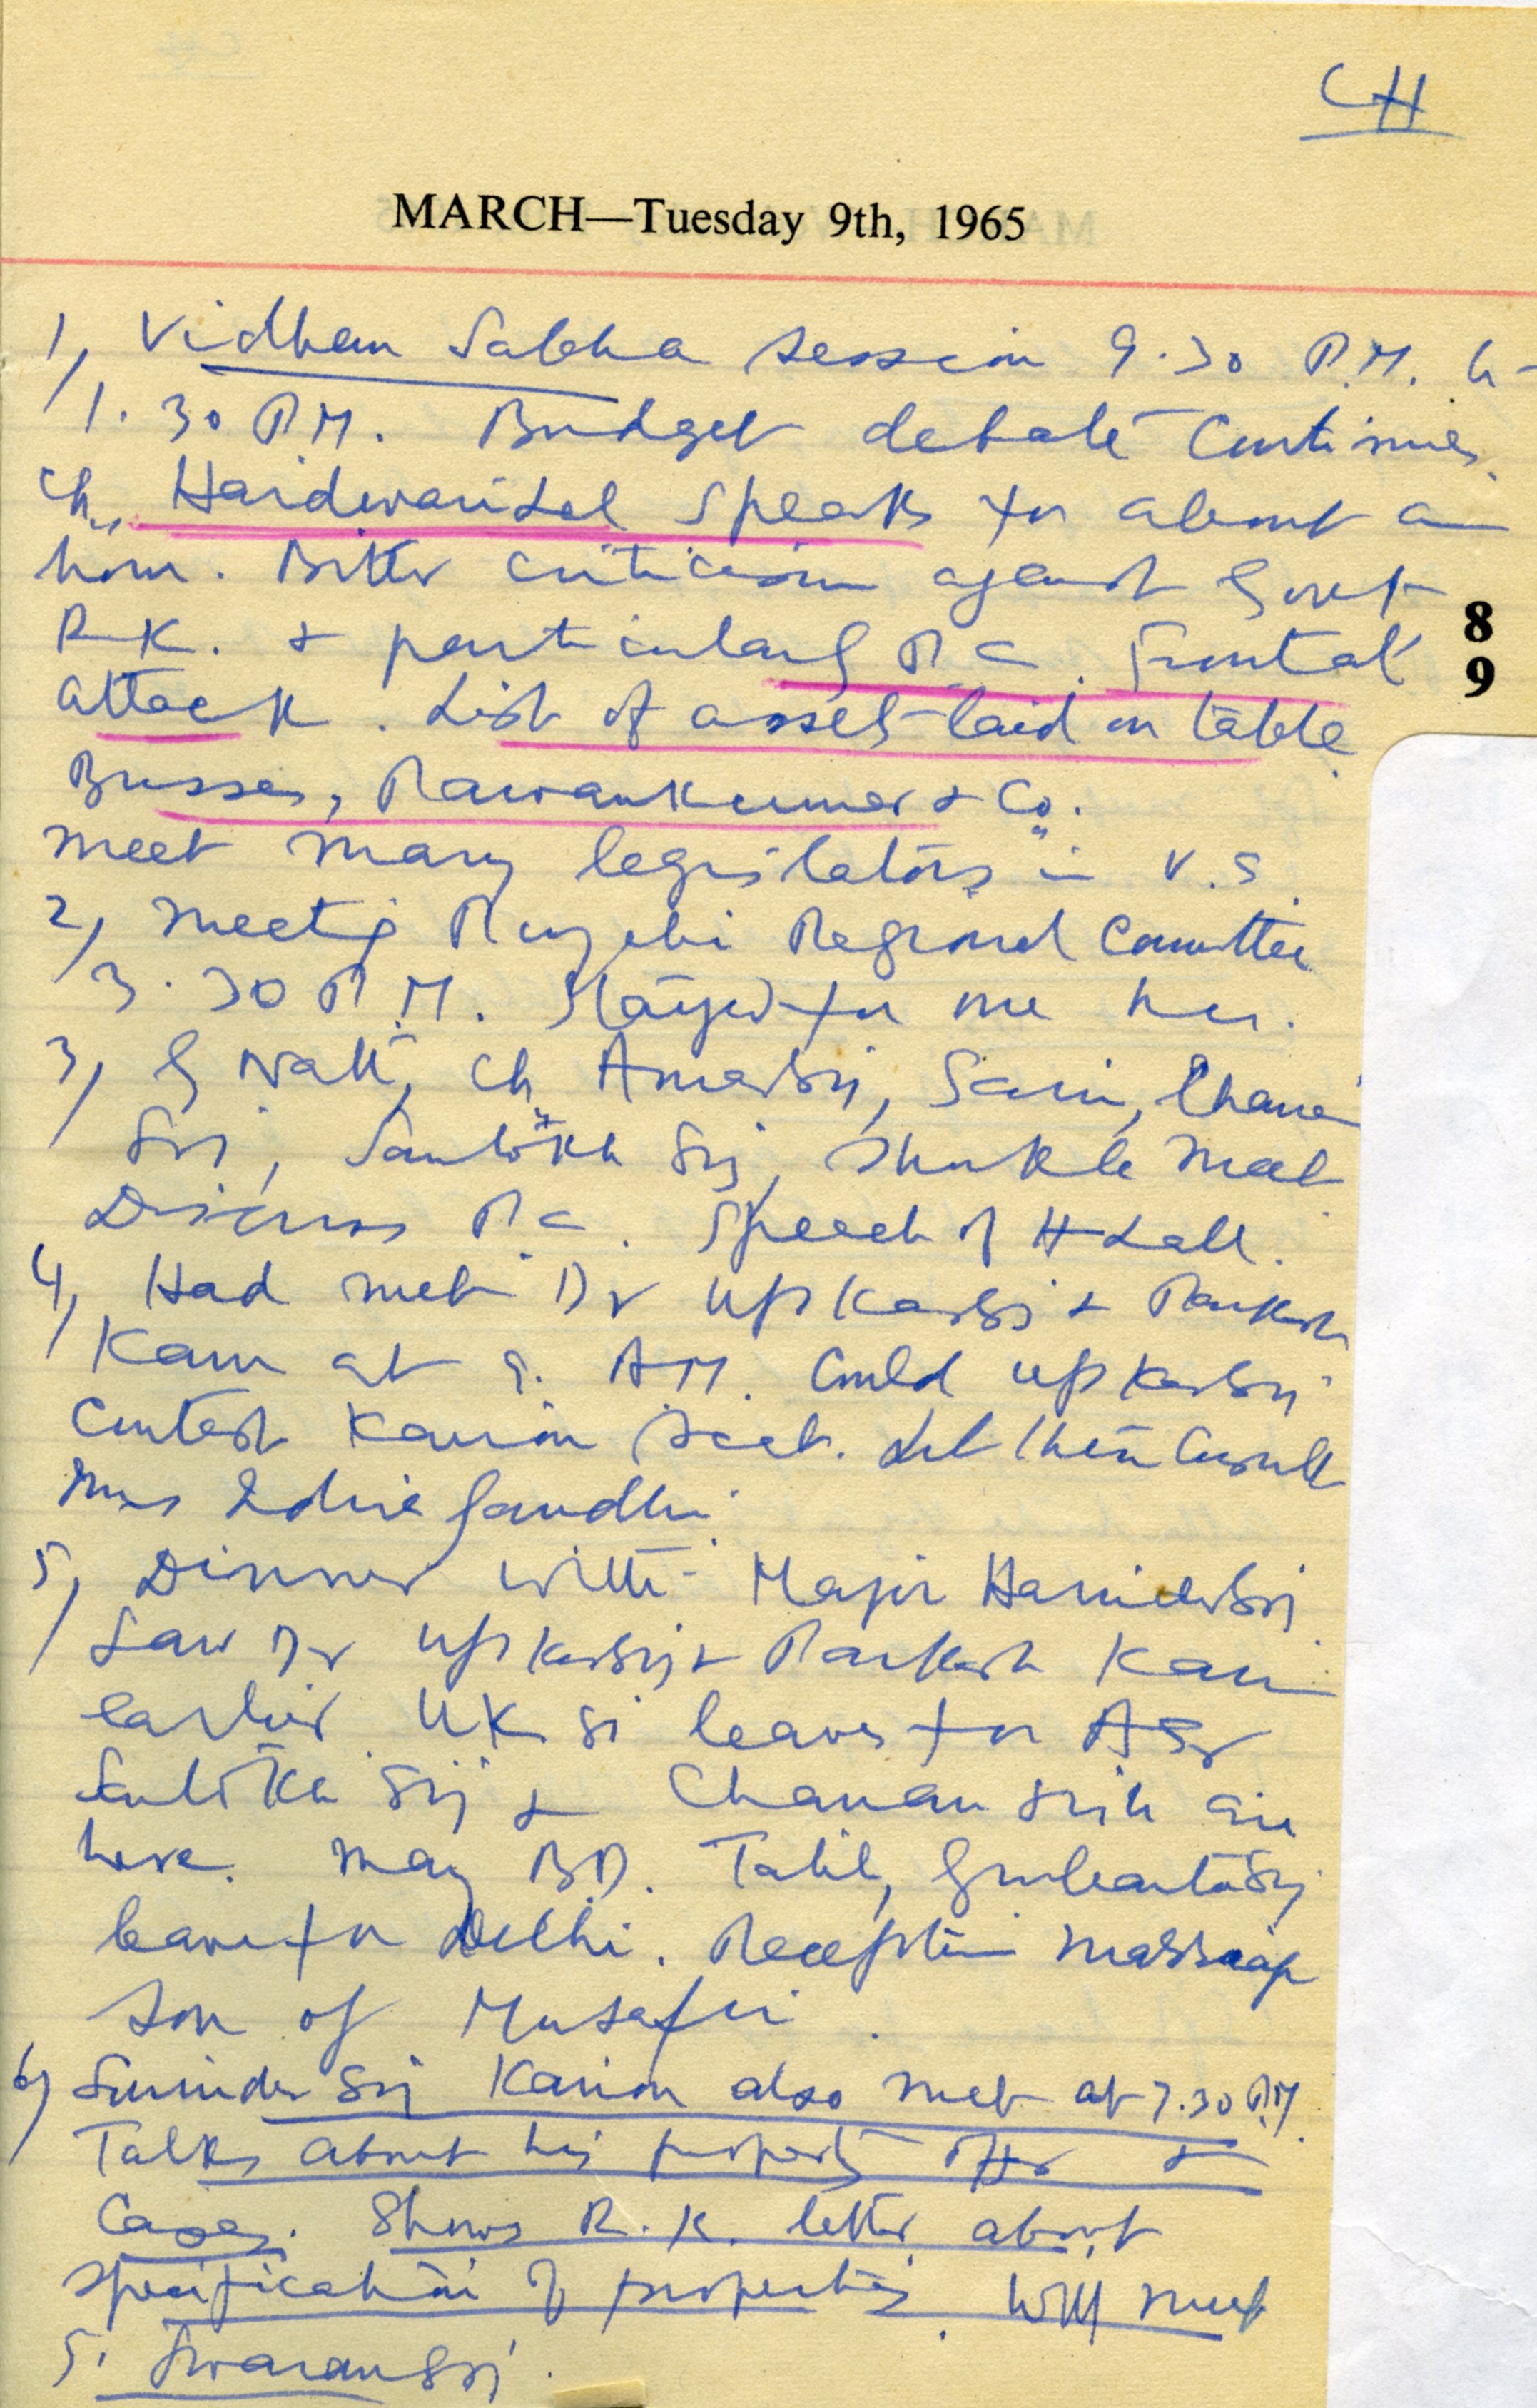 CH
MARCH—Tuesday 9th, 1965
1, Vidhan Sabha session 9.30 P.M. to
1.30 P.M. Budget debate continues.
Ch. Hardwarilal speaks for about an
hour. Bitter criticism against Govt
R.K. & particularly P.C. Frontal
attack. List of assets laid on table
Busses, Pawankumar & Co.
meet many legislators in V.S.
2, meeting Punjabi Regional Committee
3.30 P.M. Stayed for one hr.
3, G Nath, Ch. Amarsij, Saini, Chanan
Sij, Santokh Sij, Shukla meet
Discuss P.C. Speech of H Lall.
4, Had met Dr Upkarsij & Parkash
Kaur at 9. A.M. Could Upkarsij
contest Kairon seat. Let them consult
Mrs Indira Gandhi.
5, Dinner with Major Harindersij.
Saw Dr Upkarsij & Parkash Kaur
earlier. UK si leaves for ASR
Santokh Sij & Chanan Sinh are
here. May BD. Talib, Gurbantasij
leave for Delhi. Reception marriage
son of Musafir.
6, Surinder Sij Kairon also met at 7.30 P.M.
Talks about his property offer &
Cases. Shows R.K. letter about
specification of properties. Will meet
S. Swaransij.
8
9